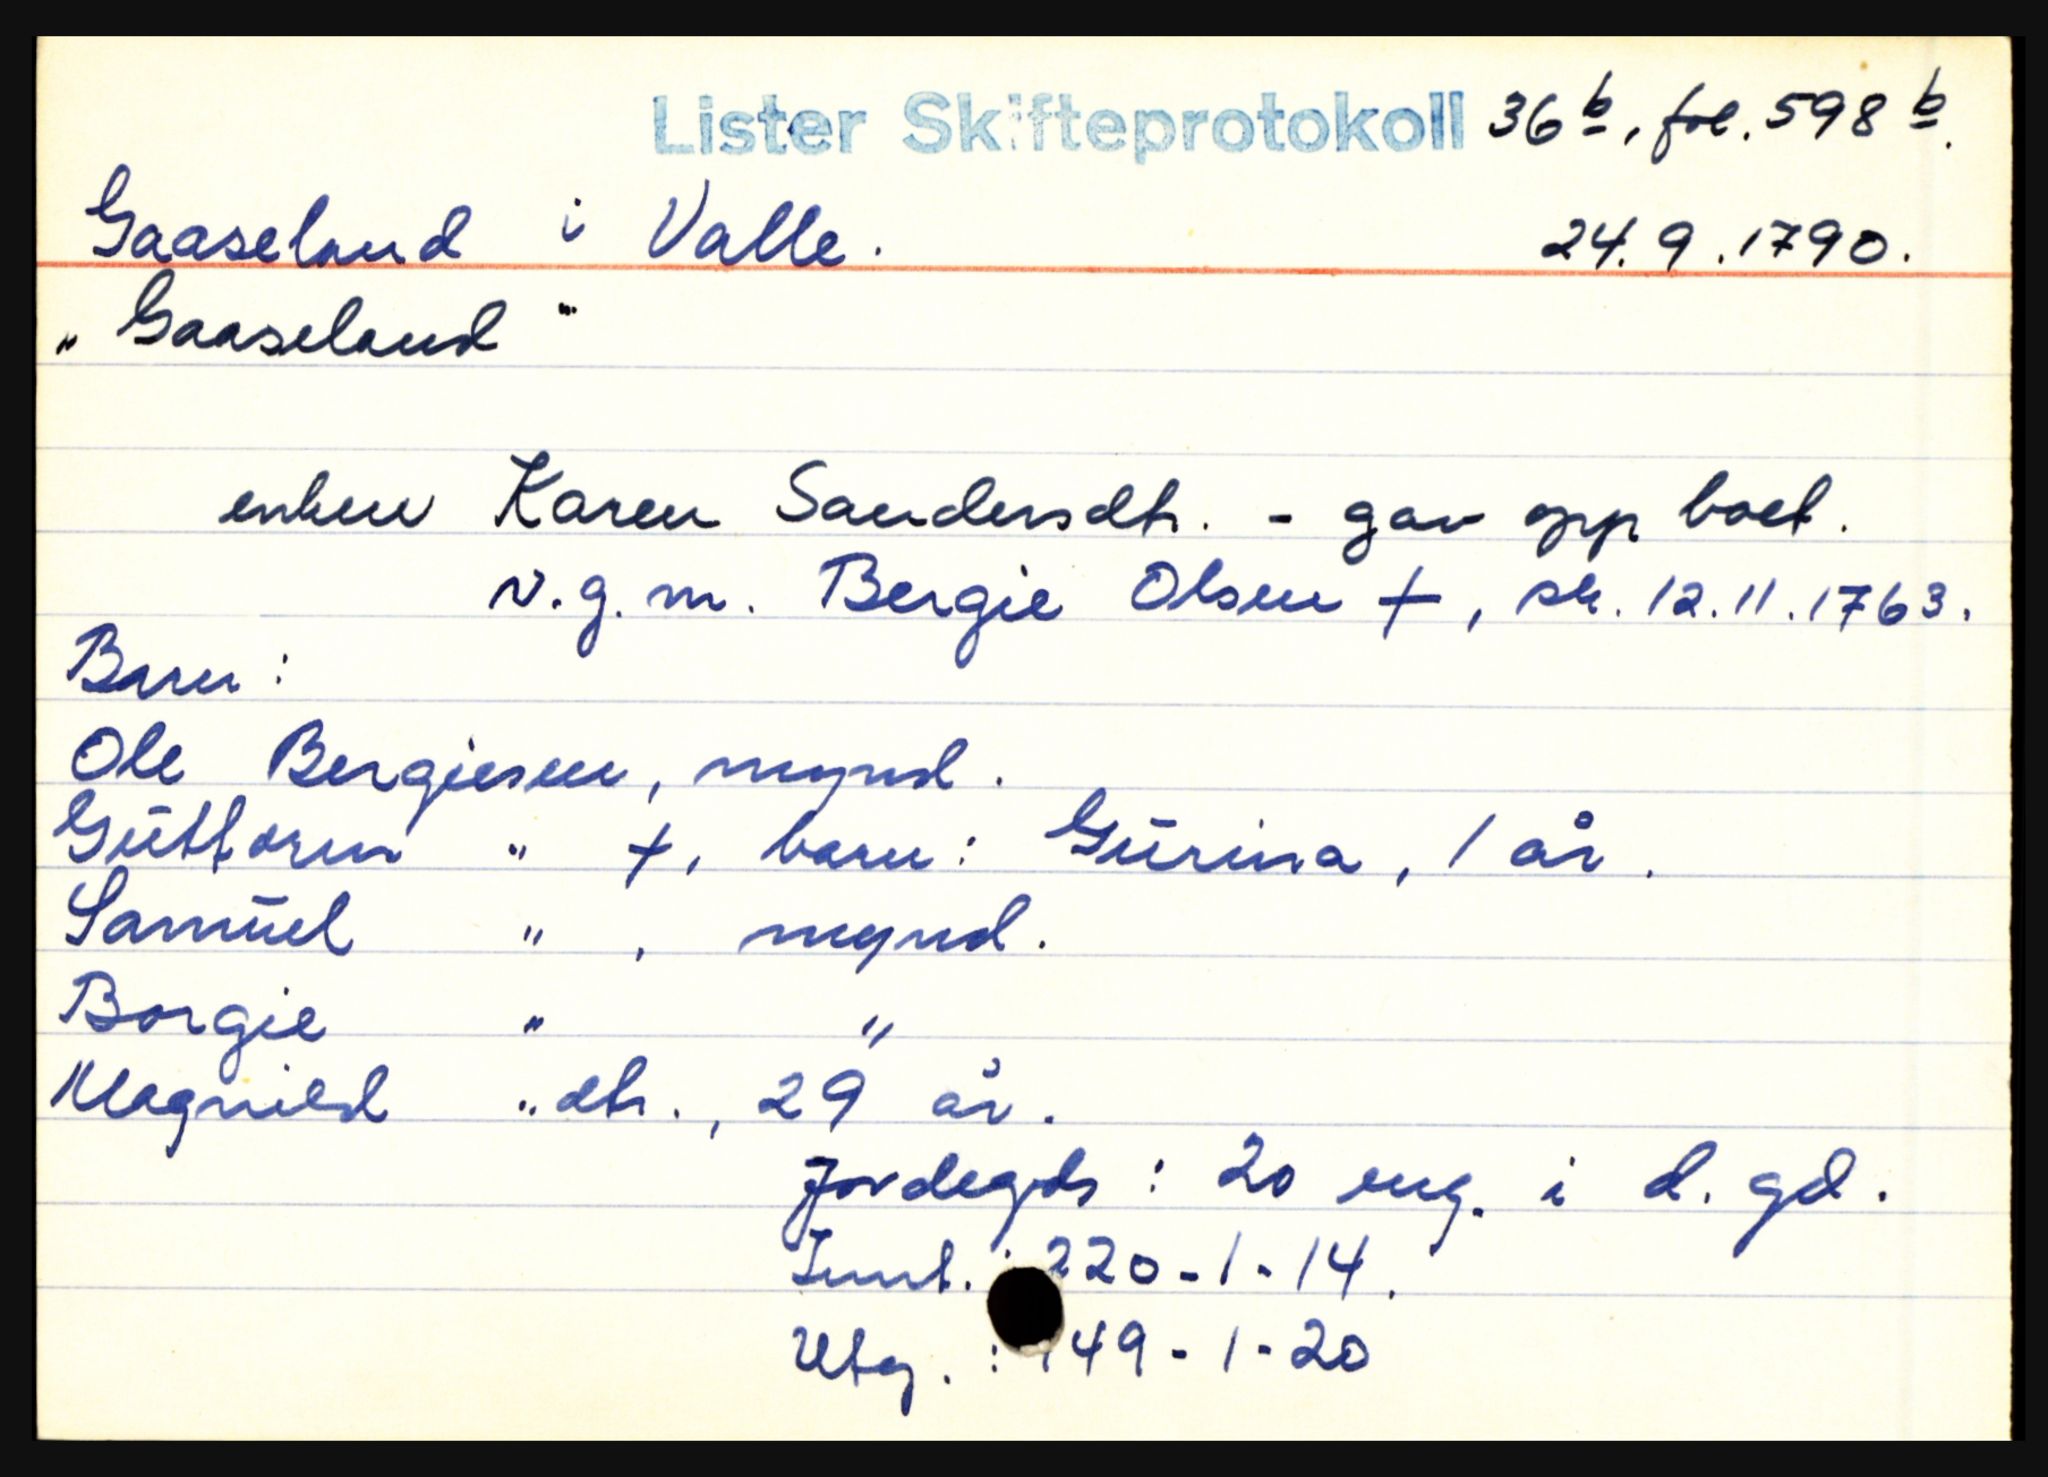 Lister Skifteprotokoll 36 b, fol. 598 b.
Gaaseland i Valle. 24.9.1790.
"Gaaseland"
enken Karen Sandersdtr. - gav opp boet.
v.g.m. Bergie Olsen +, sk. 12.11.1763.
Barn:
Ole Bergiesen, mynd.
Guttorm " +, barn: Gurina, 1 år.
Samuel " , mynd.
Borgie " "
Magnild " dtr., 29 år.
Jordegds: 20 eng. i d. gd.
Innt.: 220-1-14.
Utg.: 149-1-20